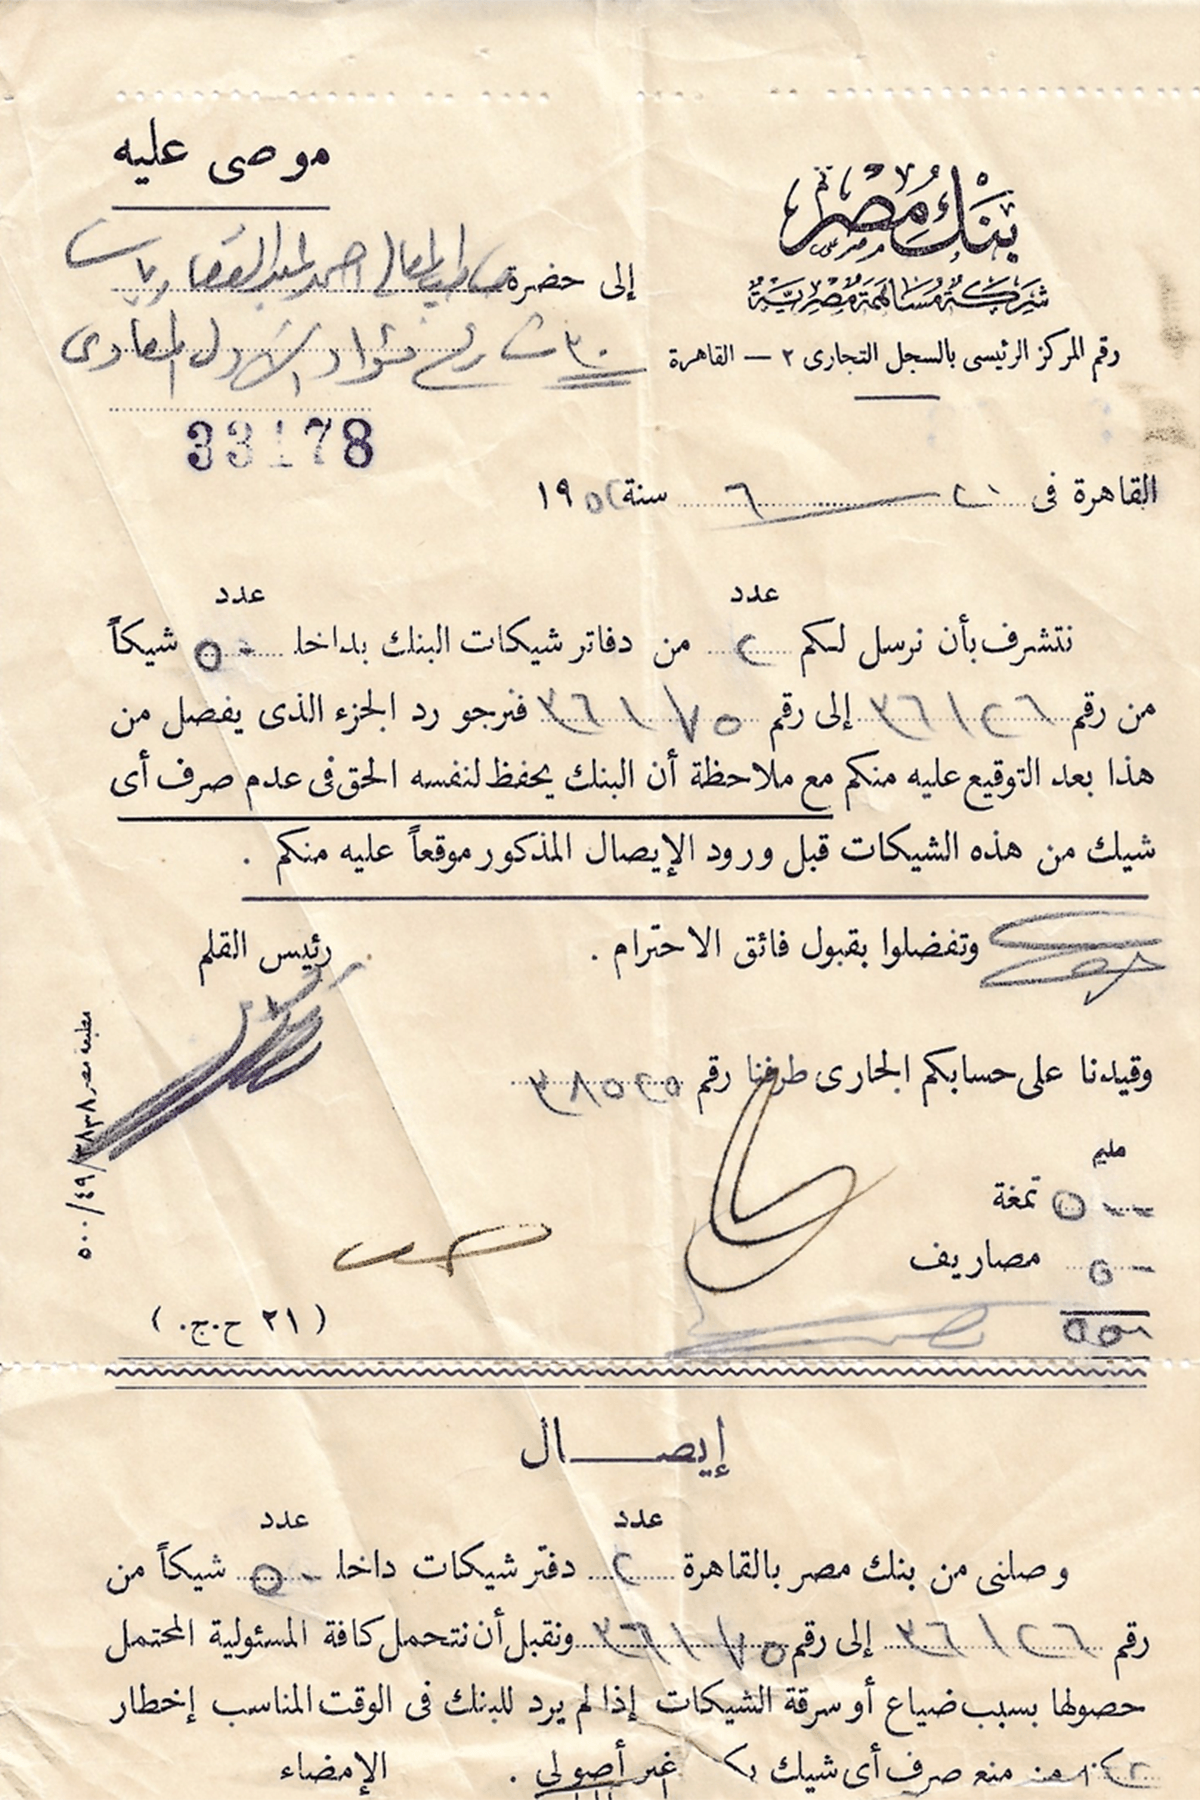 موصى عليه
بنك مصر
شركة مساهمة مصرية
إلى حضرة صاحب المعالى احمد عبد الغفار باشا
رقم المركز الرئيسى بالسجل التجارى ٢ — القاهرة
٣٠ شارع فؤاد الاول المعادى
33178
القاهرة فى ٢١ ٦ سنة ١٩٥٢
عدد عدد
نتشرف بأن نرسل لكم ٢ من دفاتر شيكات البنك بداخله ٥٠ شيكاً
من رقم ٣٦١٢٦ إلى رقم ٣٦١٧٥ فنرجو رد الجزء الذى يفصل من
هذا بعد التوقيع عليه منكم مع ملاحظة أن البنك يحفظ لنفسه الحق فى عدم صرف أى
شيك من هذه الشيكات قبل ورود الإيصال المذكور موقعاً عليه منكم .
وتفضلوا بقبول فائق الاحترام .
رئيس القلم
وقيدنا على حسابكم الجارى طرفنا رقم
مليم
تمغة
مصاريف
مطبعة مصر ٥٠٠/٤٩/٣٨٣٨
( ٢١ ح.ج. )
إيصال
عدد عدد
وصلنى من بنك مصر بالقاهرة ٢ دفتر شيكات داخله ٥٠ شيكاً من
رقم ٣٦١٢٦ إلى رقم ٣٦١٧٥ ونقبل أن نتحمل كافة المسئولية المحتمل
حصولها بسبب ضياع أو سرقة الشيكات إذا لم يرد للبنك فى الوقت المناسب إخطار
من منع صرف أى شيك غير أصولى .
الإمضاء